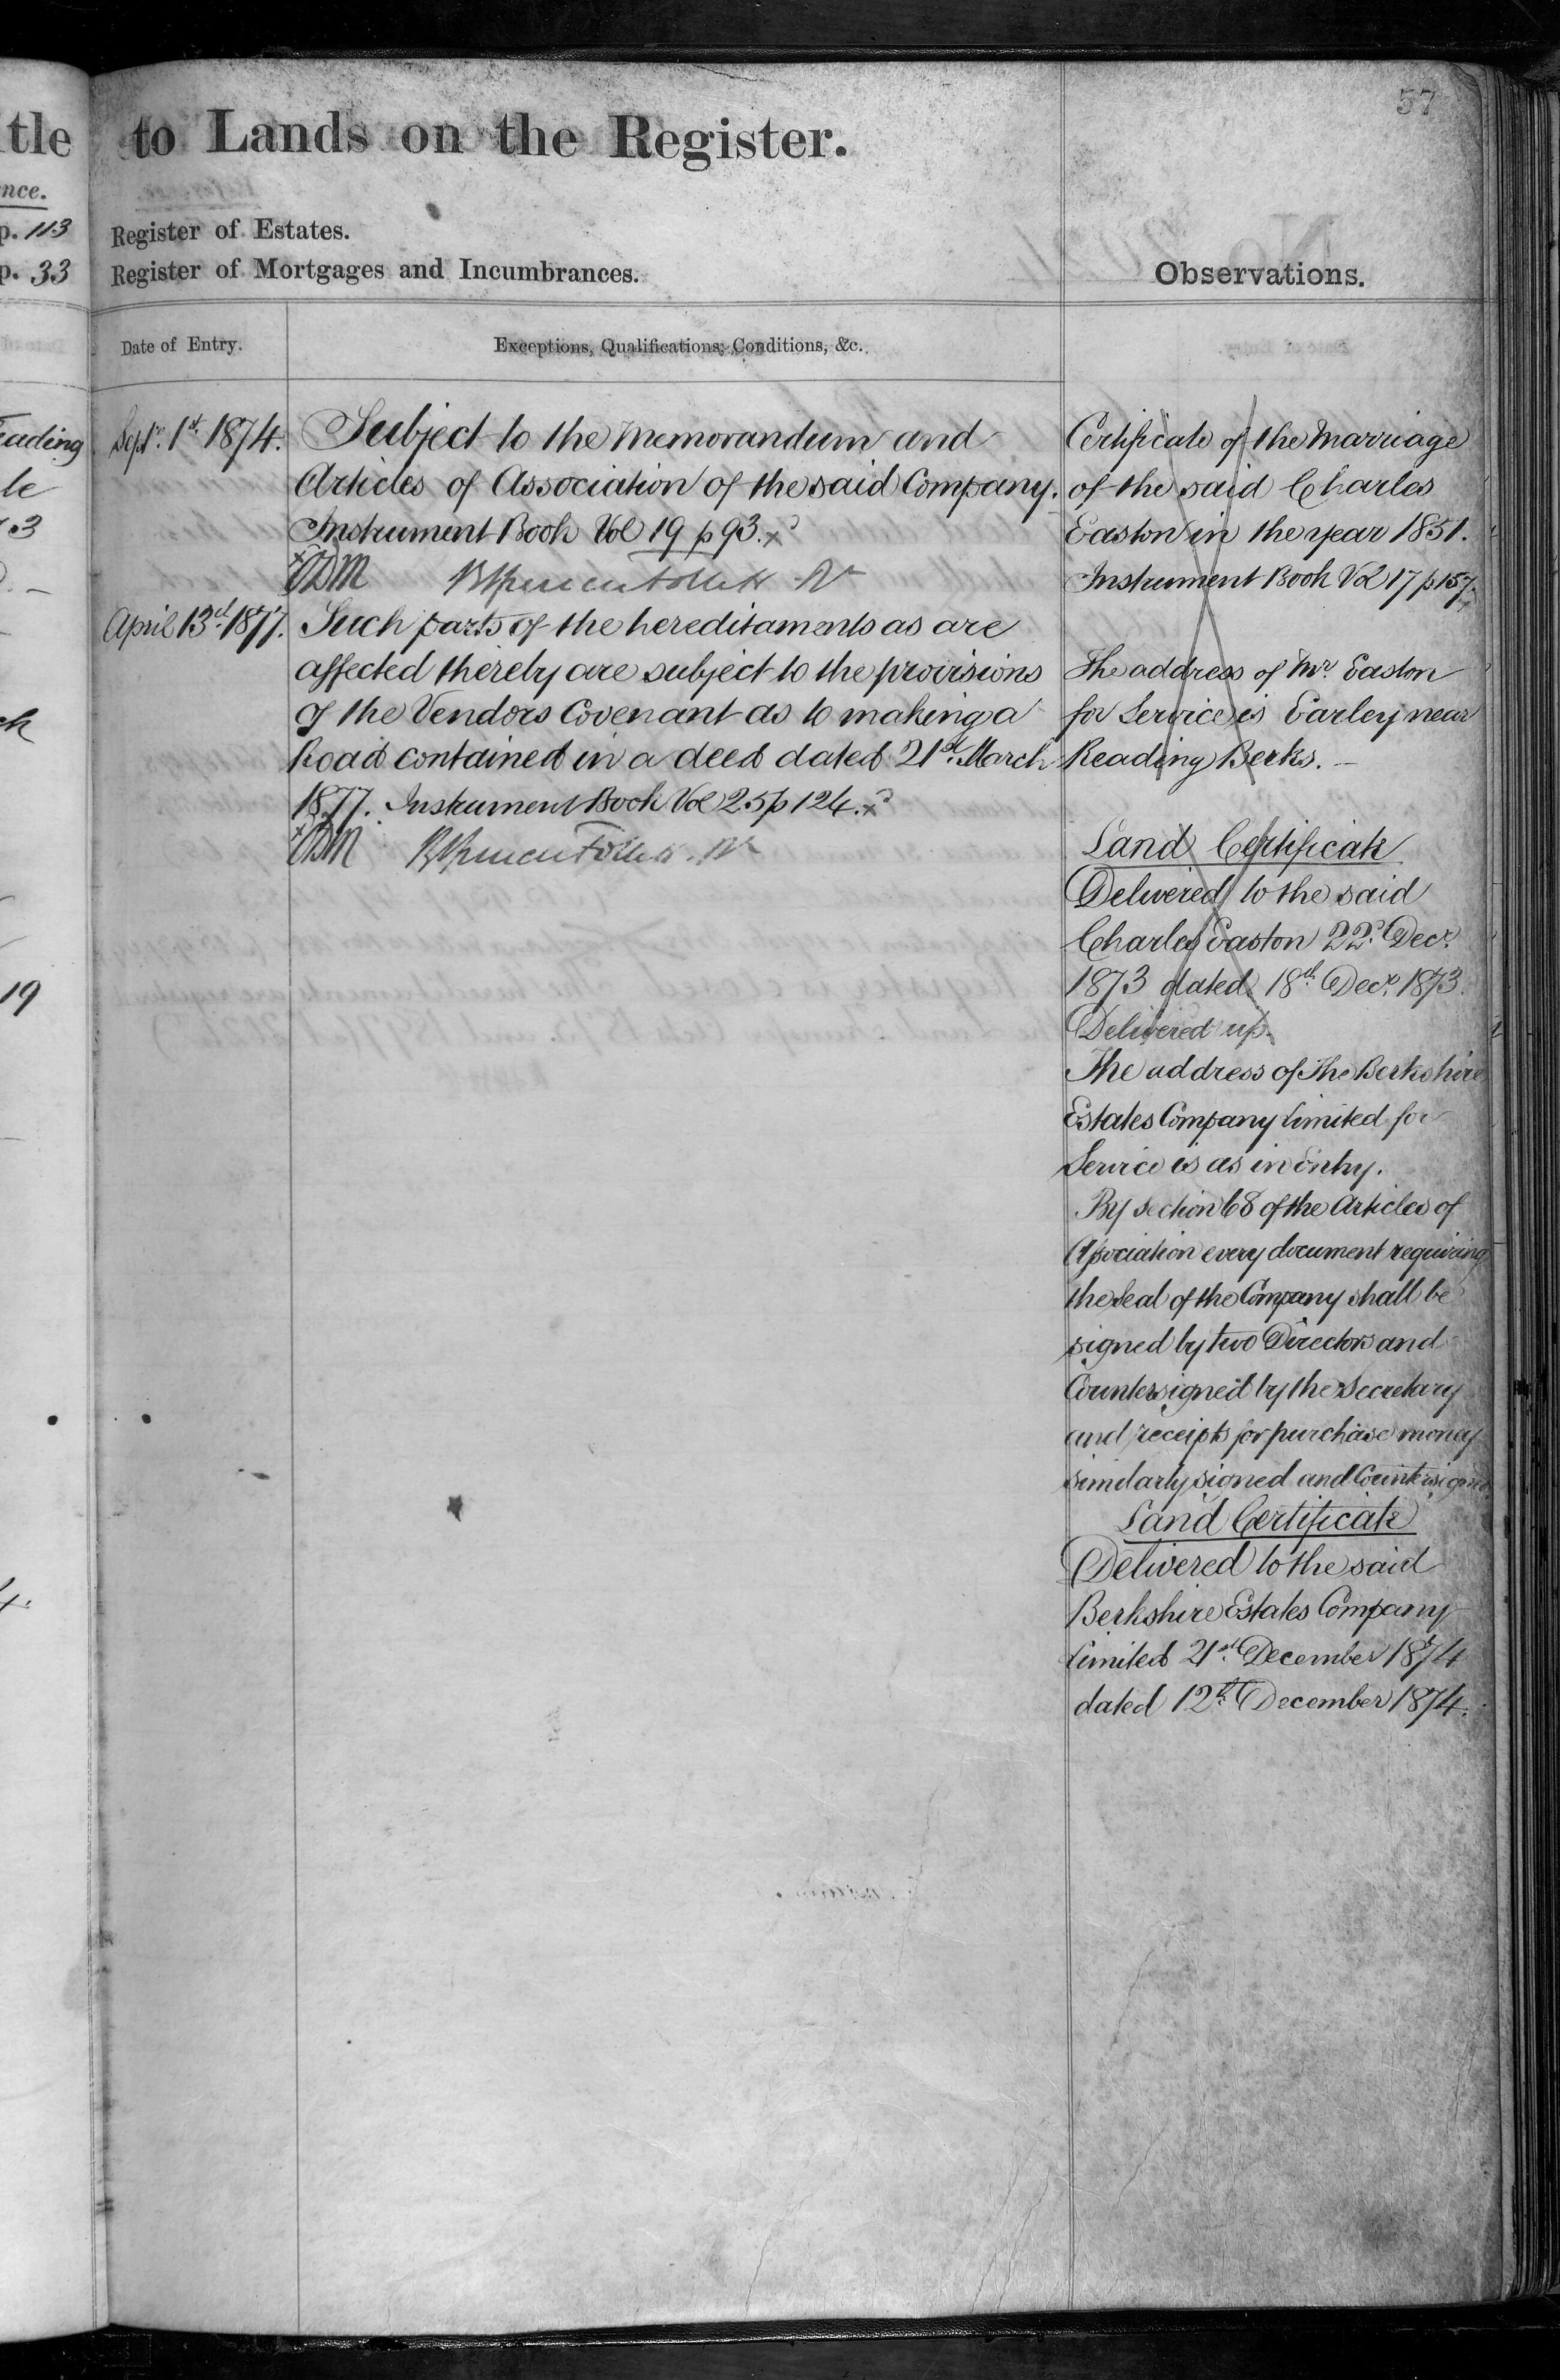 57
tle to Lands on the Register.
nce.
p. 113 Register of Estates.
p. 33 Register of Mortgages and Incumbrances.
Observations.
Date of Entry.
Exceptions, Qualifications, Conditions, &c.
eading
le
73
ck
19
Septr. 1st. 1874. Subject to the Memorandum and
Articles of Association of the said Company.
Instrument Book Vol 19 p 93. x
x
April 13d. 1877. Such parts of the hereditaments as are
affected thereby are subject to the provisions
of the Vendors Covenant as to making a
Road contained in a deed dated 21st. March
1877. Instrument Book Vol 25 p 124. x
x
Certificate of the Marriage
of the said Charles
Easton in the year 1851.
Instrument Book Vol 17 p 157.
The address of Mr. Easton
for Service is Earley near
Reading Berks. —
Land Certificate
Delivered to the said
Charles Easton 22d. Decr.
1873 dated 18th. Decr. 1873.
Delivered up.
The address of The Berkshire
Estates Company Limited for
Service is as in Entry.
By section 68 of the Articles of
Association every document requiring
the Seal of the Company shall be
signed by two Directors and
Countersigned by the Secretary
and receipts for purchase money
similarly signed and Countersigned.
Land Certificate
Delivered to the said
Berkshire Estates Company
Limited 21st. December 1874
dated 12th. December 1874.